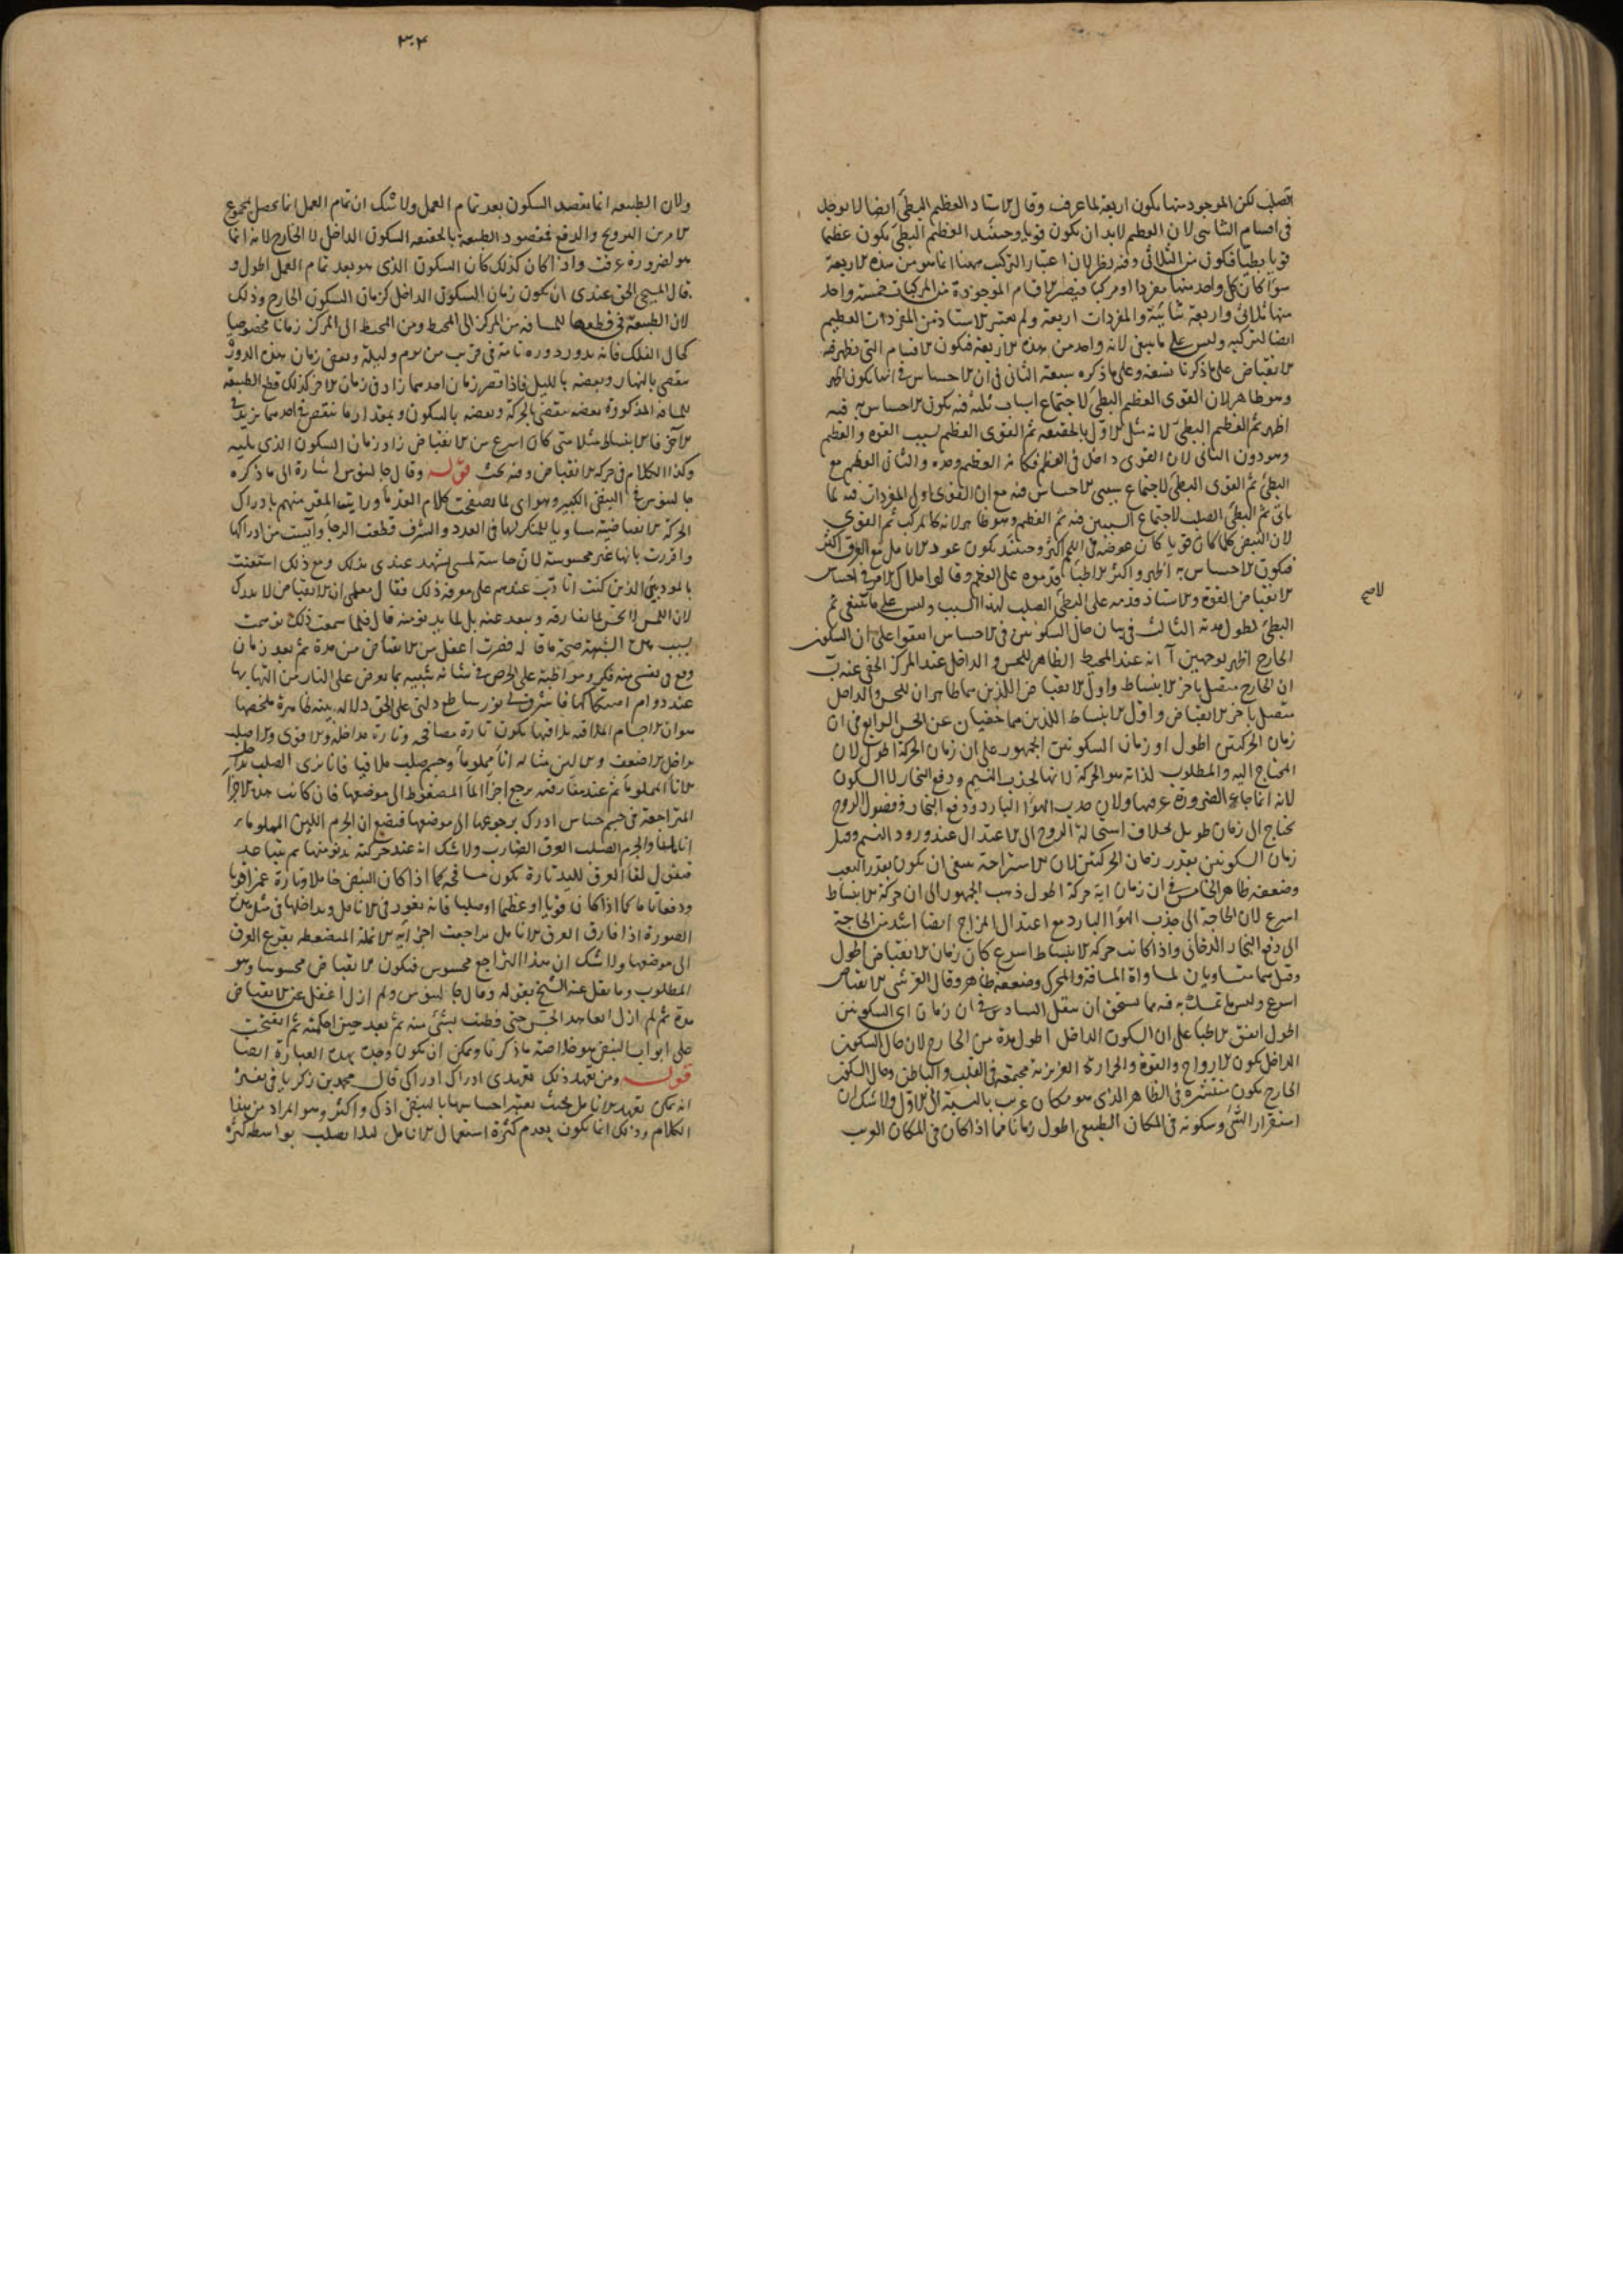 الصلب لكن الموجود منها يكون اربعة لما عرف وقال الاستاد العظيم البطئ ايضا لا يوجد
فى اقسام الثنائى لان العظيم لابد ان يكون قويا وحينئذ العظيم البطئ يكون عظيما
قويا بطيئا فيكون من الثلاثى وفيه نظر لان اعتبار التركيب ههنا انما هو من هذه الاربعة
سواء كان كل واحد منها مفردا او مركبا فيصير الاقسام الموجودة من المركبات خمسة واحد
منها ثلاثى واربعة ثنائية والمفردات اربعة ولم يعتبر الاستاد من المفردات العظيم
ايضا لتركبه وليس على ما ينبغى لانه واحد من هذه الاربعة فيكون الاقسام التى يظهر فيه
الانقباض على ما ذكرنا تسعة وعلى ما ذكره سبعة الثانى فى ان الاحساس فى ايها يكون اظهر
وهو ظاهر لان القوى العظيم البطئ لاجتماع اسباب ثلثة فيه يكون الاحساس به فيه
اظهر ثم العظيم البطئ لانه مثل الاول بالحقيقة ثم القوى العظيم لسبب القوة والعظم
وهو دون الثانى لان القوى داخل فى العظم فكانه العظيم وحده والثانى العظيم مع
البطئ ثم القوى البطئ لاجتماع سببى الاحساس فيه مع ان القوى اولى المفردات فيه لما
ياتى ثم البطئ الصلب لاجتماع السببين فيه ثم العظيم وهو ظاهر لانه كالمركب ثم القوى
لان النبض كلما كان قويا كان غوصه فى اللحم اكثر وحينئذ يكون عود الانامل مع العرق اكثر
فيكون الاحساس به اظهر واكثر الاطباء قدموه على العظيم وقالوا ملاك الامر فى احساس
الانقباض القوة والاستاد قدمه على البطئ الصلب لهذا السبب وليس على ما ينبغى ثم
لاصح
البطئ لطول مدته الثالث فى بيان حال السكونين فى الاحساس اتفقوا على ان السكون
الخارج اظهر لوجهين آ انه عند المحيط الظاهر للحس والداخل عند المركز الخفى عنه ب
ان الخارج متصل باخر الانبساط واول الانقباض اللذين هما ظاهران للحس والداخل
متصل باخر الانقباض واول الانبساط اللذين هما خفيان عن الحس الرابع فى ان
زمان الحركتين اطول او زمان السكونين الجمهور على ان زمان الحركة اطول لان
المحتاج اليه والمطلوب لذاته هو الحركة لانها لجذب النسيم ودفع البخار لا السكون
لانه انما جاء لضرورة عرفتها ولان جذب الهواء البارد ودفع البخار وفضول الروح
يحتاج الى زمان طويل بخلاف استحالة الروح الى الاعتدال عند ورود النسيم وقيل
زمان السكونين بقدر زمان الحركتين لان الاستراحة ينبغى ان يكون بقدر التعب
وضعفه ظاهر الخامس فى ان زمان اية حركة اطول ذهب الجمهور الى ان حركة الانبساط
اسرع لان الحاجة الى جذب الهواء البارد مع اعتدال المزاج ايضا اشد من الحاجة
الى دفع البخار الدخانى واذا كانت حركة الانبساط اسرع كان زمان الانقباض اطول
وقيل هما متساويان لمساواة المسافة والمحرك وضعفه ظاهر وقال القرشى الانقباض
اسرع وليس ما تمسك به فيه مما يستحق ان ينقل السادس فى ان زمان اى السكونين
اطول اتفق الاطباء على ان السكون الداخل اطول مدة من الخارج لان حال السكون
الداخل يكون الارواح والقوة والحرارة الغريزية مجتمعة فى القلب والباطن وحال السكون
الخارج يكون منتشرة فى الظاهر الذى هو مكان غريب بالنسبة الى الاول ولا شك ان
استقرار الشئ وسكونه فى المكان الطبيعى اطول زمانا مما اذا كان فى المكان الغريب
٣٠٤
ولان الطبيعة انما يقصد السكون بعد تمام العمل ولا شك ان تمام العمل انما يحصل بمجموع
الامرين الترويح والدفع فمقصود الطبيعة بالحقيقة السكون الداخل لا الخارج لانه انما
هو لضرورة عرفت واذا كان كذلك كان السكون الذى هو بعد تمام العمل اطول و
قال المسيحى الحق عندى ان يكون زمان السكون الداخل كزمان السكون الخارج وذلك
لان الطبيعة فى قطعها للمسافة من المركز الى المحيط ومن المحيط الى المركز زمانا مخصوصا
كحال الفلك فانه يدور دورة تامة فى قريب من يوم وليلة وبعض زمان هذه الدورة
ينقضى بالنهار وبعضه بالليل فاذا قصر زمان احدهما زاد فى زمان الاخر كذلك قطع الطبيعة
للمسافة المذكورة بعضه ينقضى بالحركة وبعضه بالسكون وبمقدار ما ينقص فى احدهما يزيد فى
الآخر فالانبساط مثلا متى كان اسرع من الانقباض زاد زمان السكون الذى يليه
وكذا الكلام فى حركة الانقباض وفيه بحث قوله وقال جالينوس اشارة الى ما ذكره
جالينوس فى النبض الكبير وهو اى لما تصفحت كلام القدماء ورايت المقر منهم بادراك
الحركة الانقباضية مساويا للمنكر لها فى العدد والشرف قطعت الرجاء وآيست من ادراكها
واقررت بانها غير محسوسة لان حاسة لمسى يشهد عندى بذلك ومع ذلك استعنت
بالمودبين الذين كنت اتادب عندهم على معرفة ذلك فقال معلمى ان الانقباض لا يدرك
لان اللمس لا يحس لما يفارقه ويبعد عنه بل لما يدنو منه قال فلما سمعت ذلك توهمت
بسبب هذه الشبهة صحة ما قاله فصرت اغفل من الانقباض من مدة ثم بعد زمان
وقع فى نفسى منه فكر ومواظبة على الحرص فى شانه شبيه بما يعرض على النار من التهابها
عند دوام استكمالها فاشرق لى نور ساطع دلنى على الحق دلالة بينة ظاهرة ملخصها
هو ان الاجسام الملاقية بلاقيها يكون تارة مصافحة وتارة مداخلة والاقوى والاصلب
يداخل الاضعف والالين مثاله اناء مملو ماء وجسم صلب ملاقيا فانا نرى الصلب
الاناء المملو ماء ثم عند مفارقته يرجع اجزاء الماء المضغوط الى موضعها فان كانت هذه الاجزاء
المتراجعة فى جسم حساس ادرك برجوعها الى موضعها فيضع ان الجرم اللين المملو ماء
انامل والجرم الصلب العرق الضارب ولا شك انه عند حركته يدنو منها ثم يتباعد
فنقول لقاء العرق لليد تارة يكون مصافحة كما اذا كان النبض خاملا وتارة غمزا قويا
ودفعا تاما كما اذا كان قويا او عظيما او صلبا فانه يغور فى الانامل ويداخلها فى مثل هذه
الصورة اذا فارق العرق الانامل تراجعت اجزاء الانملة المنضغطة بقرع العرق
الى موضعها ولا شك ان هذا التراجع محسوس فيكون الانقباض محسوسا وهو
المطلوب وما نقل عنه الشيخ بقوله وقال جالينوس ولم ازل اغفل عن الانقباض
مدة ثم لم ازل اتعاهد الجس حتى فطنت لشئ منه ثم بعد حين احكمته ثم انفتحت
على ابواب النبض هو خلاصة ما ذكرنا ويمكن ان يكون وجد بهذه العبارة ايضا
قوله ومن تعهد ذلك تعهدى ادرك ادراكى قال محمد بن زكريا فى تفسيره
انه يمكن تعهد الانامل بحيث يعتبر احساسها بالنبض اذكى واكثر وهو المراد من هذا
الكلام وذلك انما يكون بعدم كثرة استعمال الانامل لئلا يصلب بواسطة كثرة